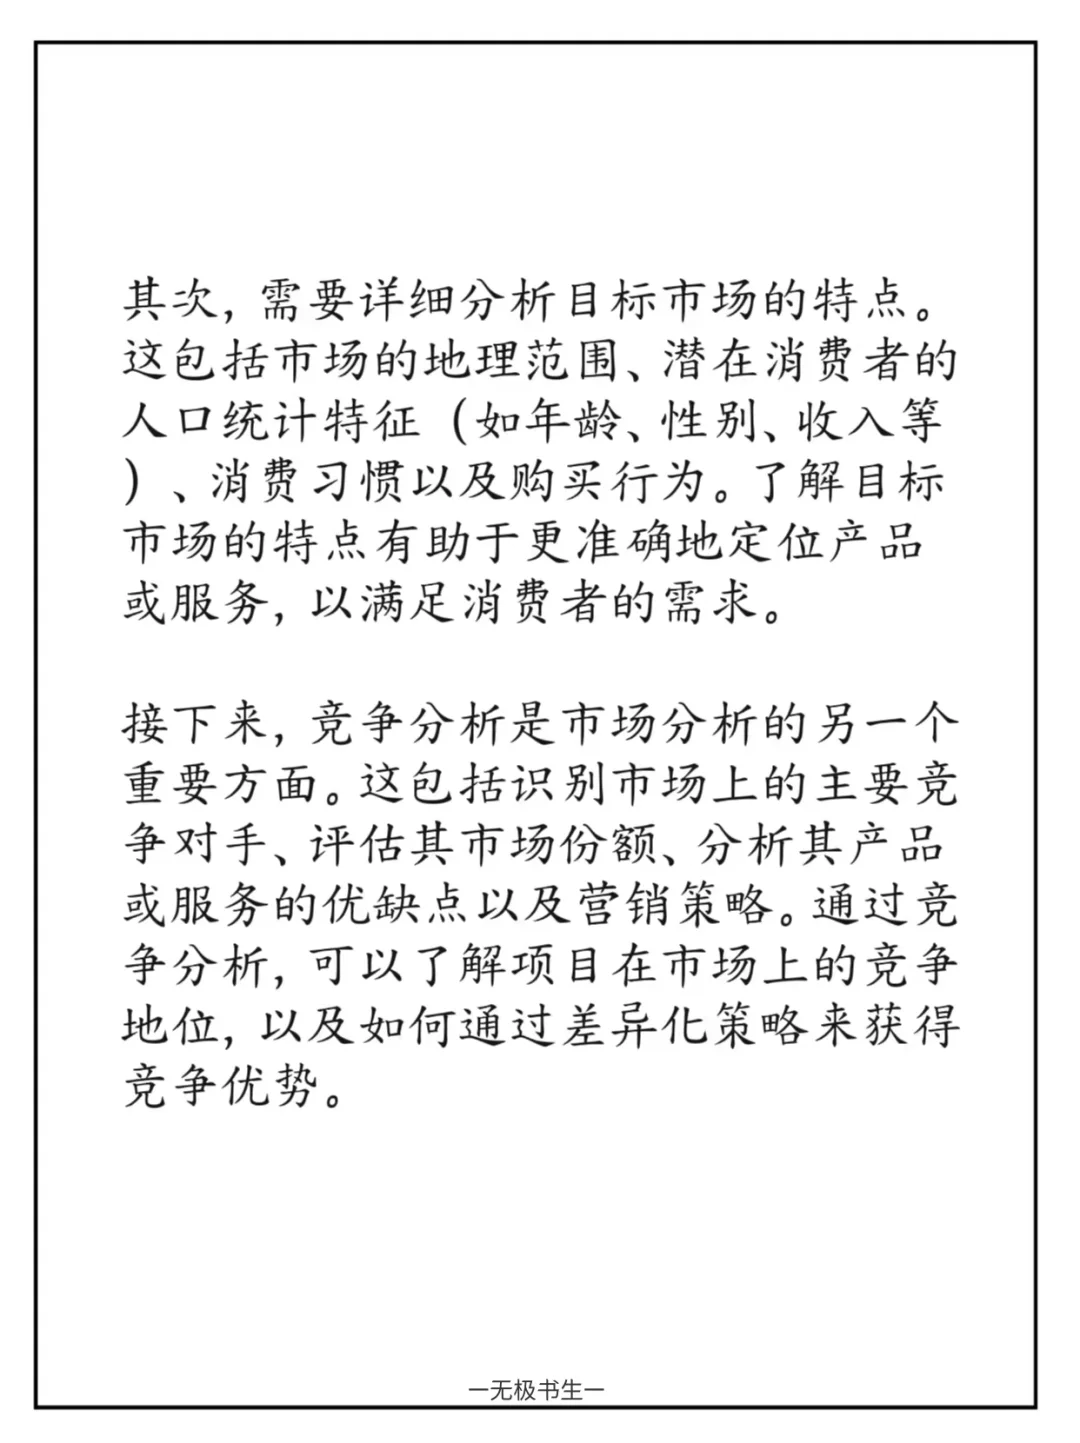 其次，需要详细分析目标市场的特点。
这包括市场的地理范围、潜在消费者的
人口统计特征（如年龄、性别、收入等
）、消费习惯以及购买行为。了解目标
市场的特点有助于更准确地定位产品
或服务，以满足消费者的需求。
接下来，竞争分析是市场分析的另一个
重要方面。这包括识别市场上的主要竞
争对手、评估其市场份额、分析其产品
或服务的优缺点以及营销策略。通过竞
争分析，可以了解项目在市场上的竞争
地位，以及如何通过差异化策略来获得
竞争优势。
一无极书生一